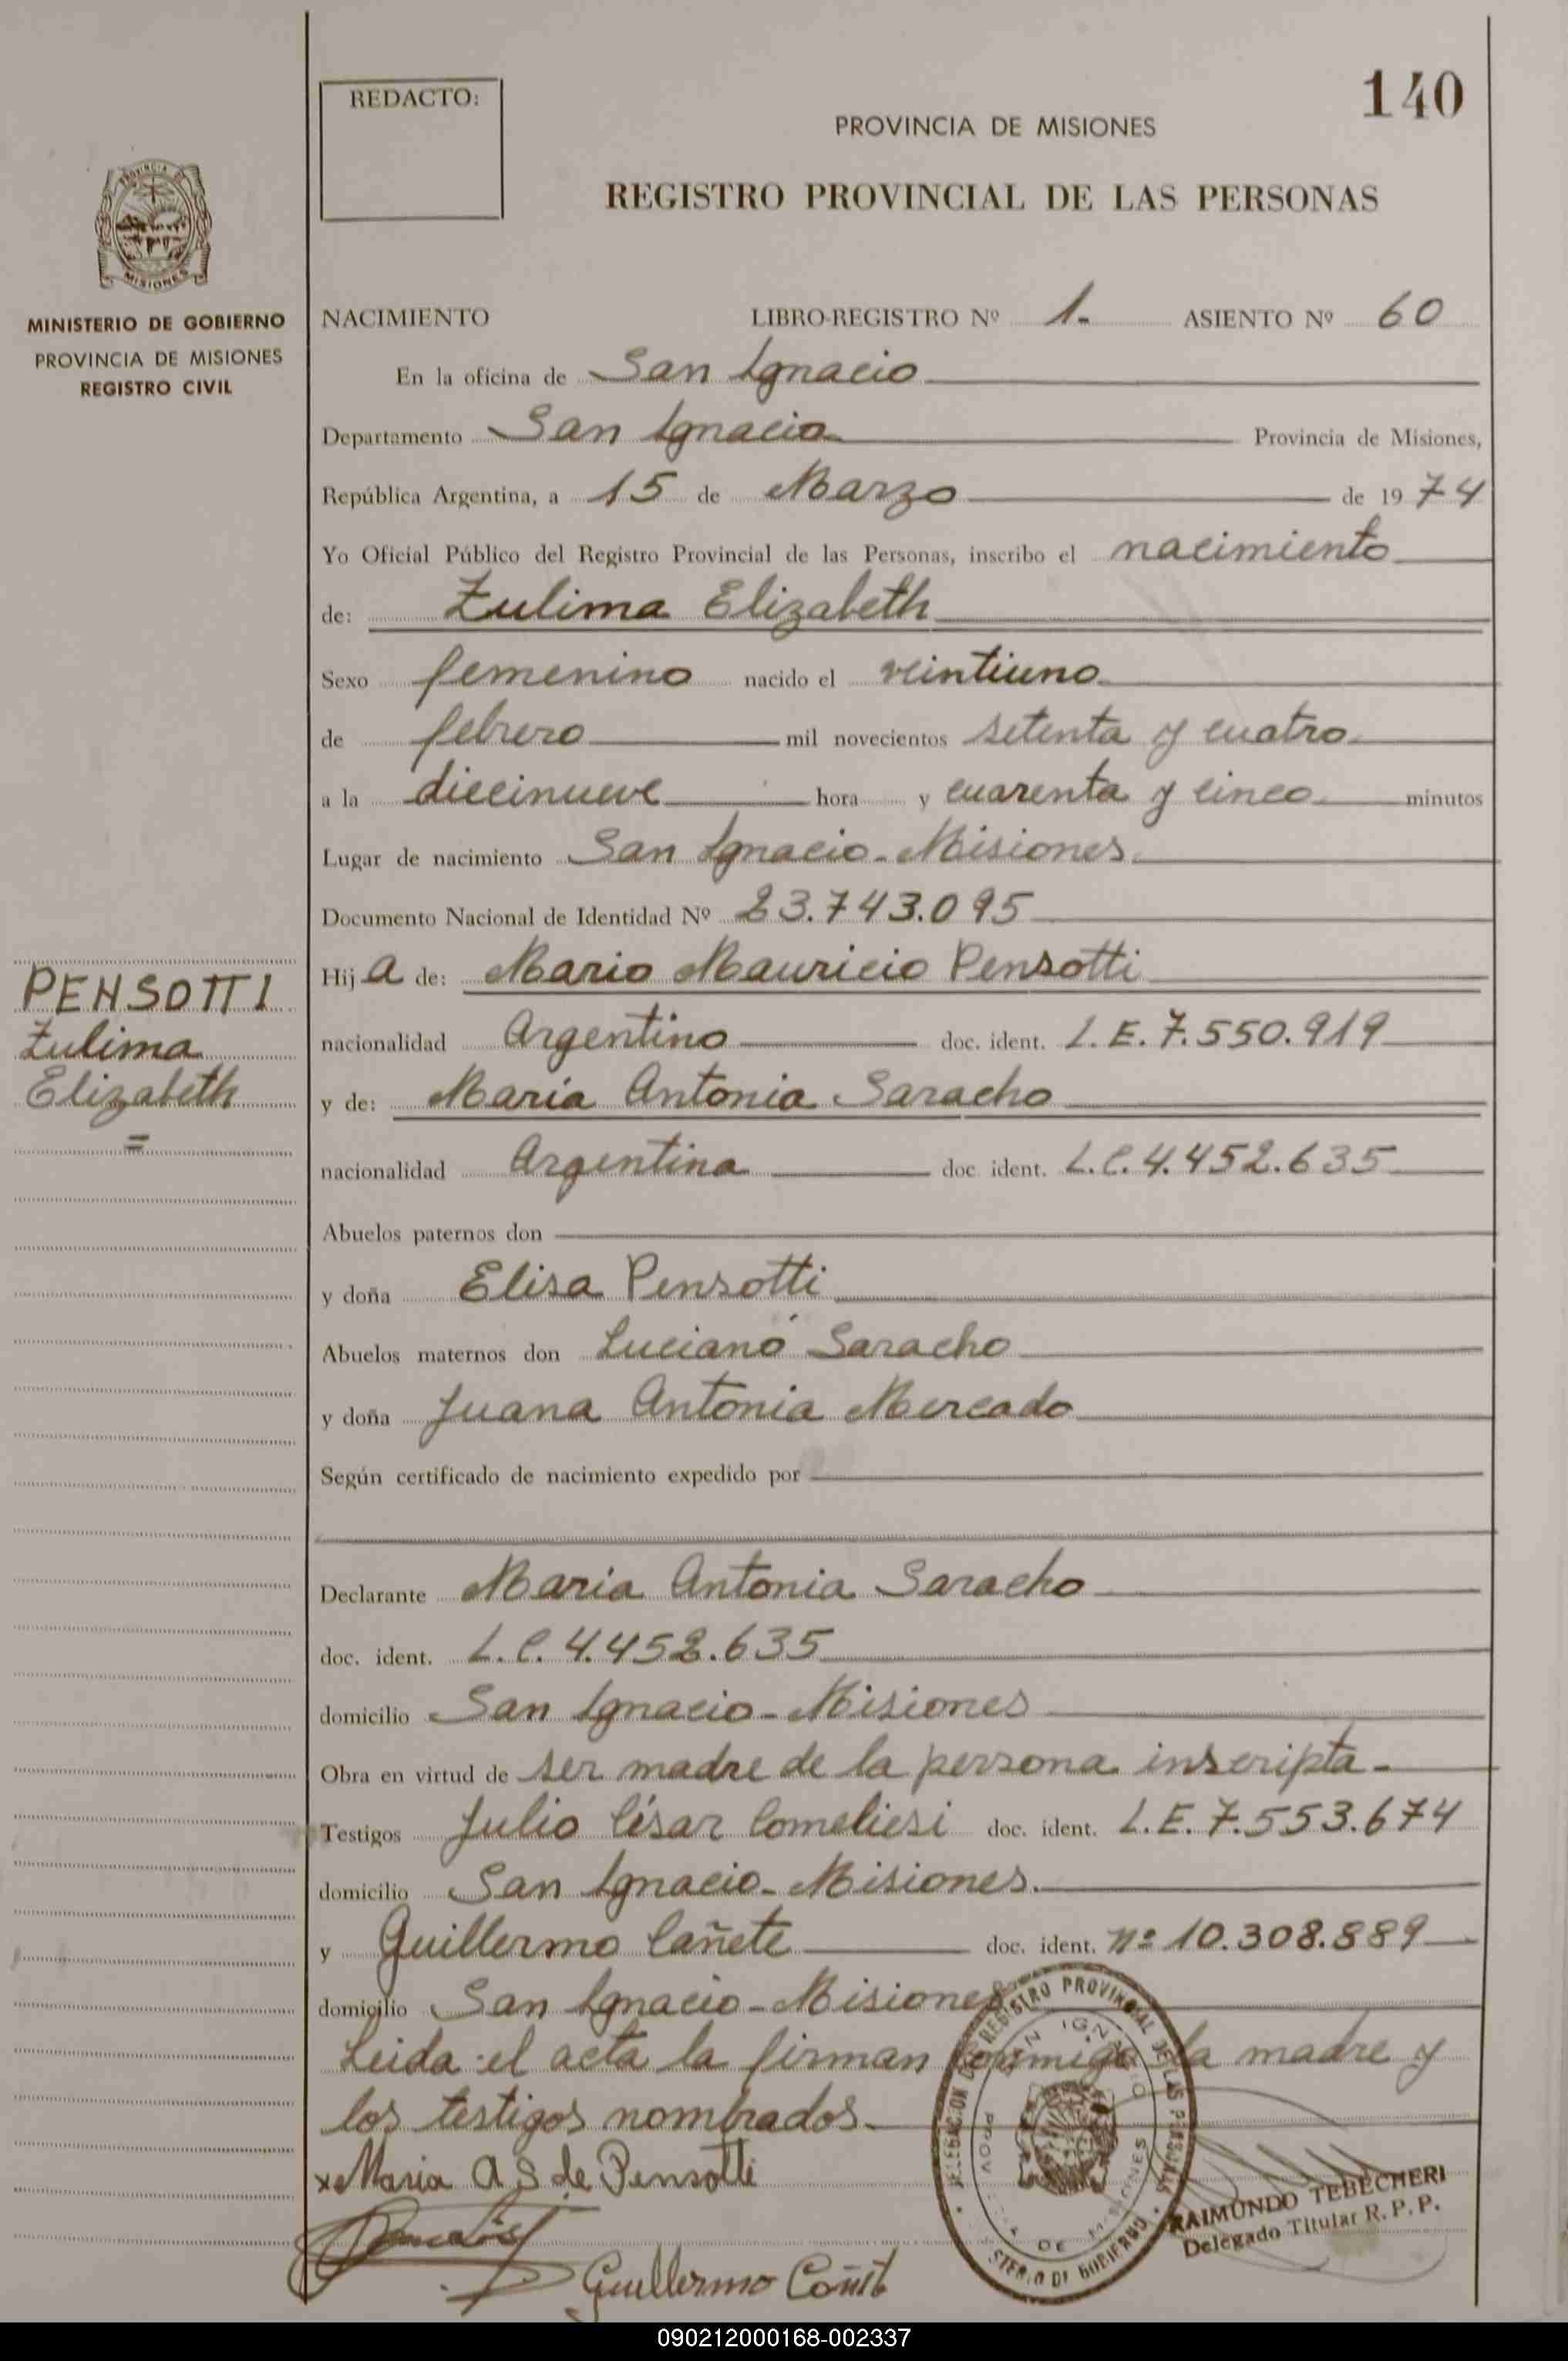 REDACTO:
140
PROVINCIA DE MISIONES
REGISTRO PROVINCIAL DE LAS PERSONAS
PROVINCIA DE
MISIONES
MINISTERIO DE GOBIERNO
PROVINCIA DE MISIONES
REGISTRO CIVIL
NACIMIENTO LIBRO-REGISTRO Nº 1.- ASIENTO Nº 60
En la oficina de San Ignacio
Departamento San Ignacio Provincia de Misiones,
República Argentina, a 15 de Marzo de 1974
Yo Oficial Público del Registro Provincial de las Personas, inscribo el nacimiento
de: Zulima Elizabeth
Sexo femenino nacido el veintiuno
de febrero mil novecientos setenta y cuatro.
a la diecinueve hora y cuarenta y cinco minutos
Lugar de nacimiento San Ignacio - Misiones.
Documento Nacional de Identidad Nº 23.743.095
PENSOTTI
Zulima
Elizabeth
=
Hija de: Mario Mauricio Pensotti
nacionalidad Argentino doc. ident. L.E. 7.550.919
y de: María Antonia Saracho
nacionalidad Argentina doc. ident. L.C. 4.452.635
Abuelos paternos don
y doña Elisa Pensotti
Abuelos maternos don Luciano Saracho
y doña Juana Antonia Mercado
Según certificado de nacimiento expedido por
Declarante Maria Antonia Saracho
doc. ident. L.C. 4.452.635
domicilio San Ignacio - Misiones
Obra en virtud de ser madre de la persona inscripta.-
Testigos Julio César Comeliesi doc. ident. L.E. 7.553.674
domicilio San Ignacio - Misiones.
y Guillermo Cañete doc. ident. nº 10.308.889
domicilio San Ignacio - Misiones
Leida el acta la firman conmigo la madre y
los testigos nombrados.-
x Maria A S de Pensotti
Guillermo Cañete
DELEGACION DEL REGISTRO PROVINCIAL DE LAS PERSONAS
SAN IGNACIO
PROV DE MISIONES
MINISTERIO DE GOBIERNO
RAIMUNDO TEBECHERI
Delegado Titular R. P. P.
090212000168-002337